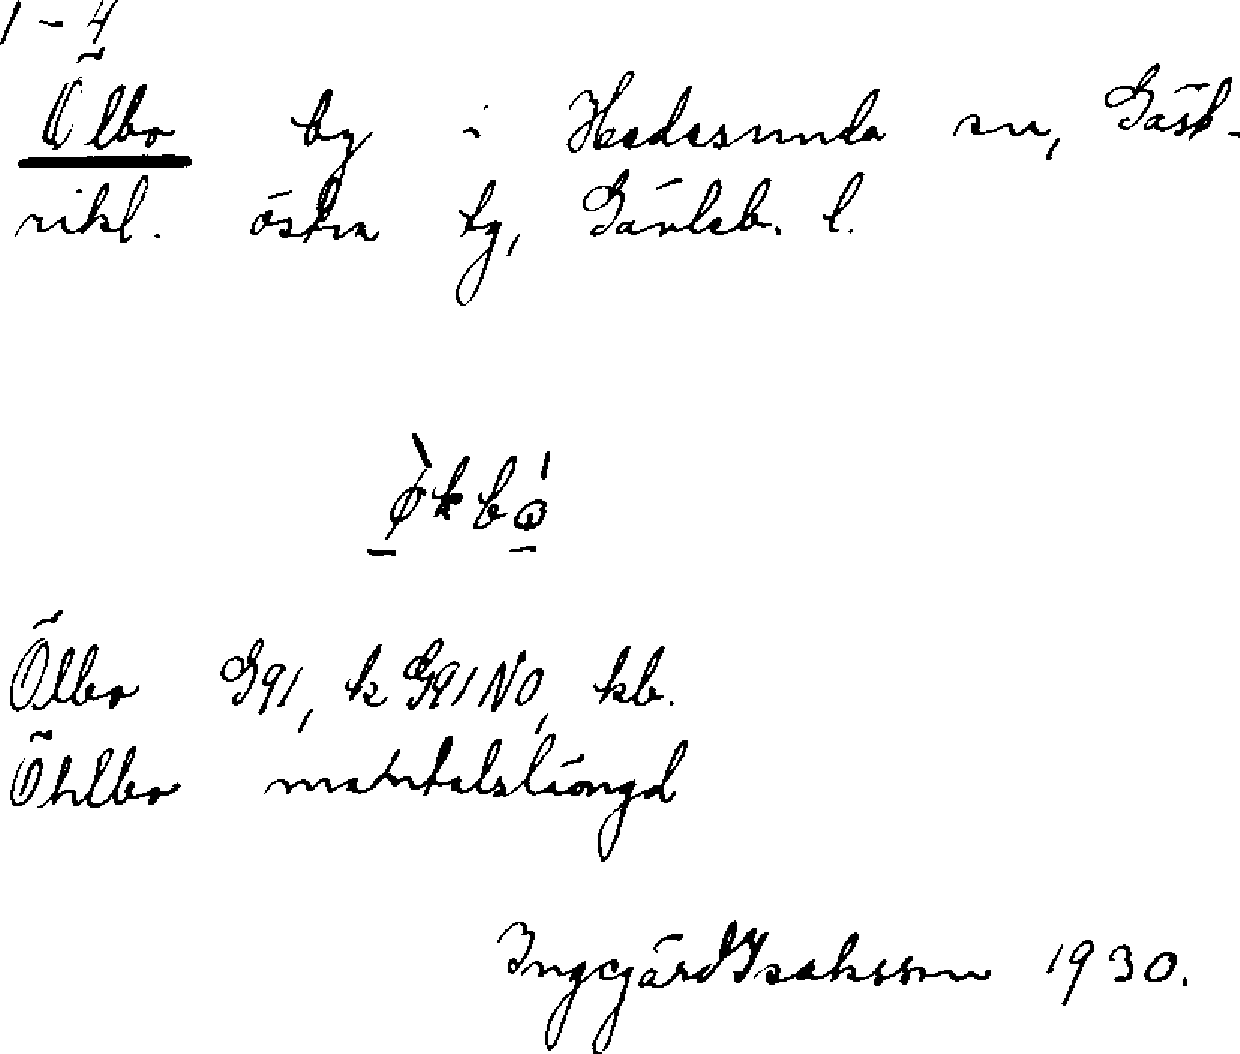 1-4
Ölbo by i Hedesunda sn, Gäst-
rikl. östra tg, Gävleb. l.
Ölbo G91, k G91 NO, kb.
Öhlbo mantalslängd
Ingegärd Isaksson 1930.